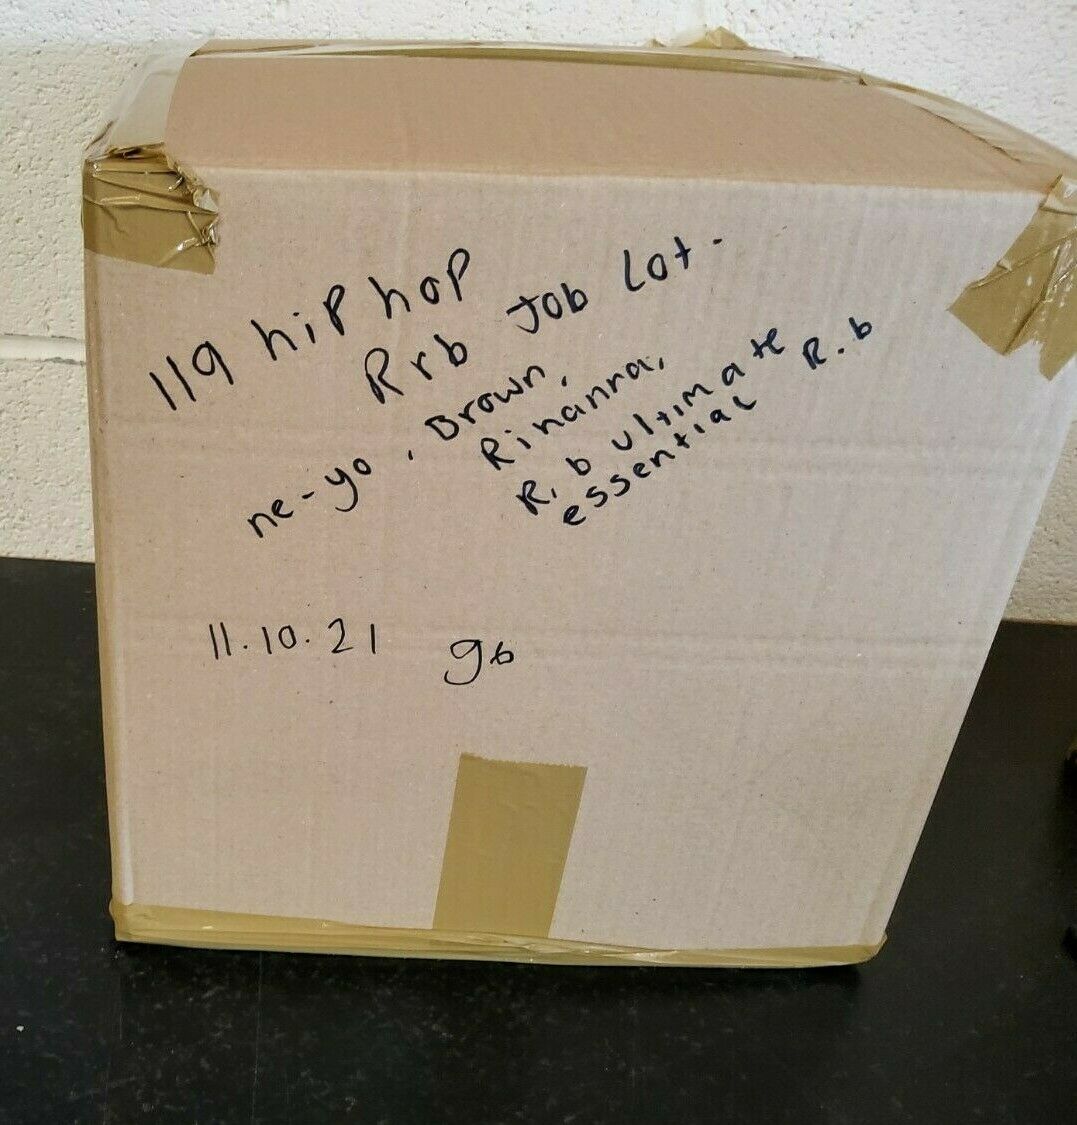 119 hip hop
Rrb Job Lot.
ne-yo, Brown,
Rihanna,
R.b ultimate
essential R.b
11.10.21 gb